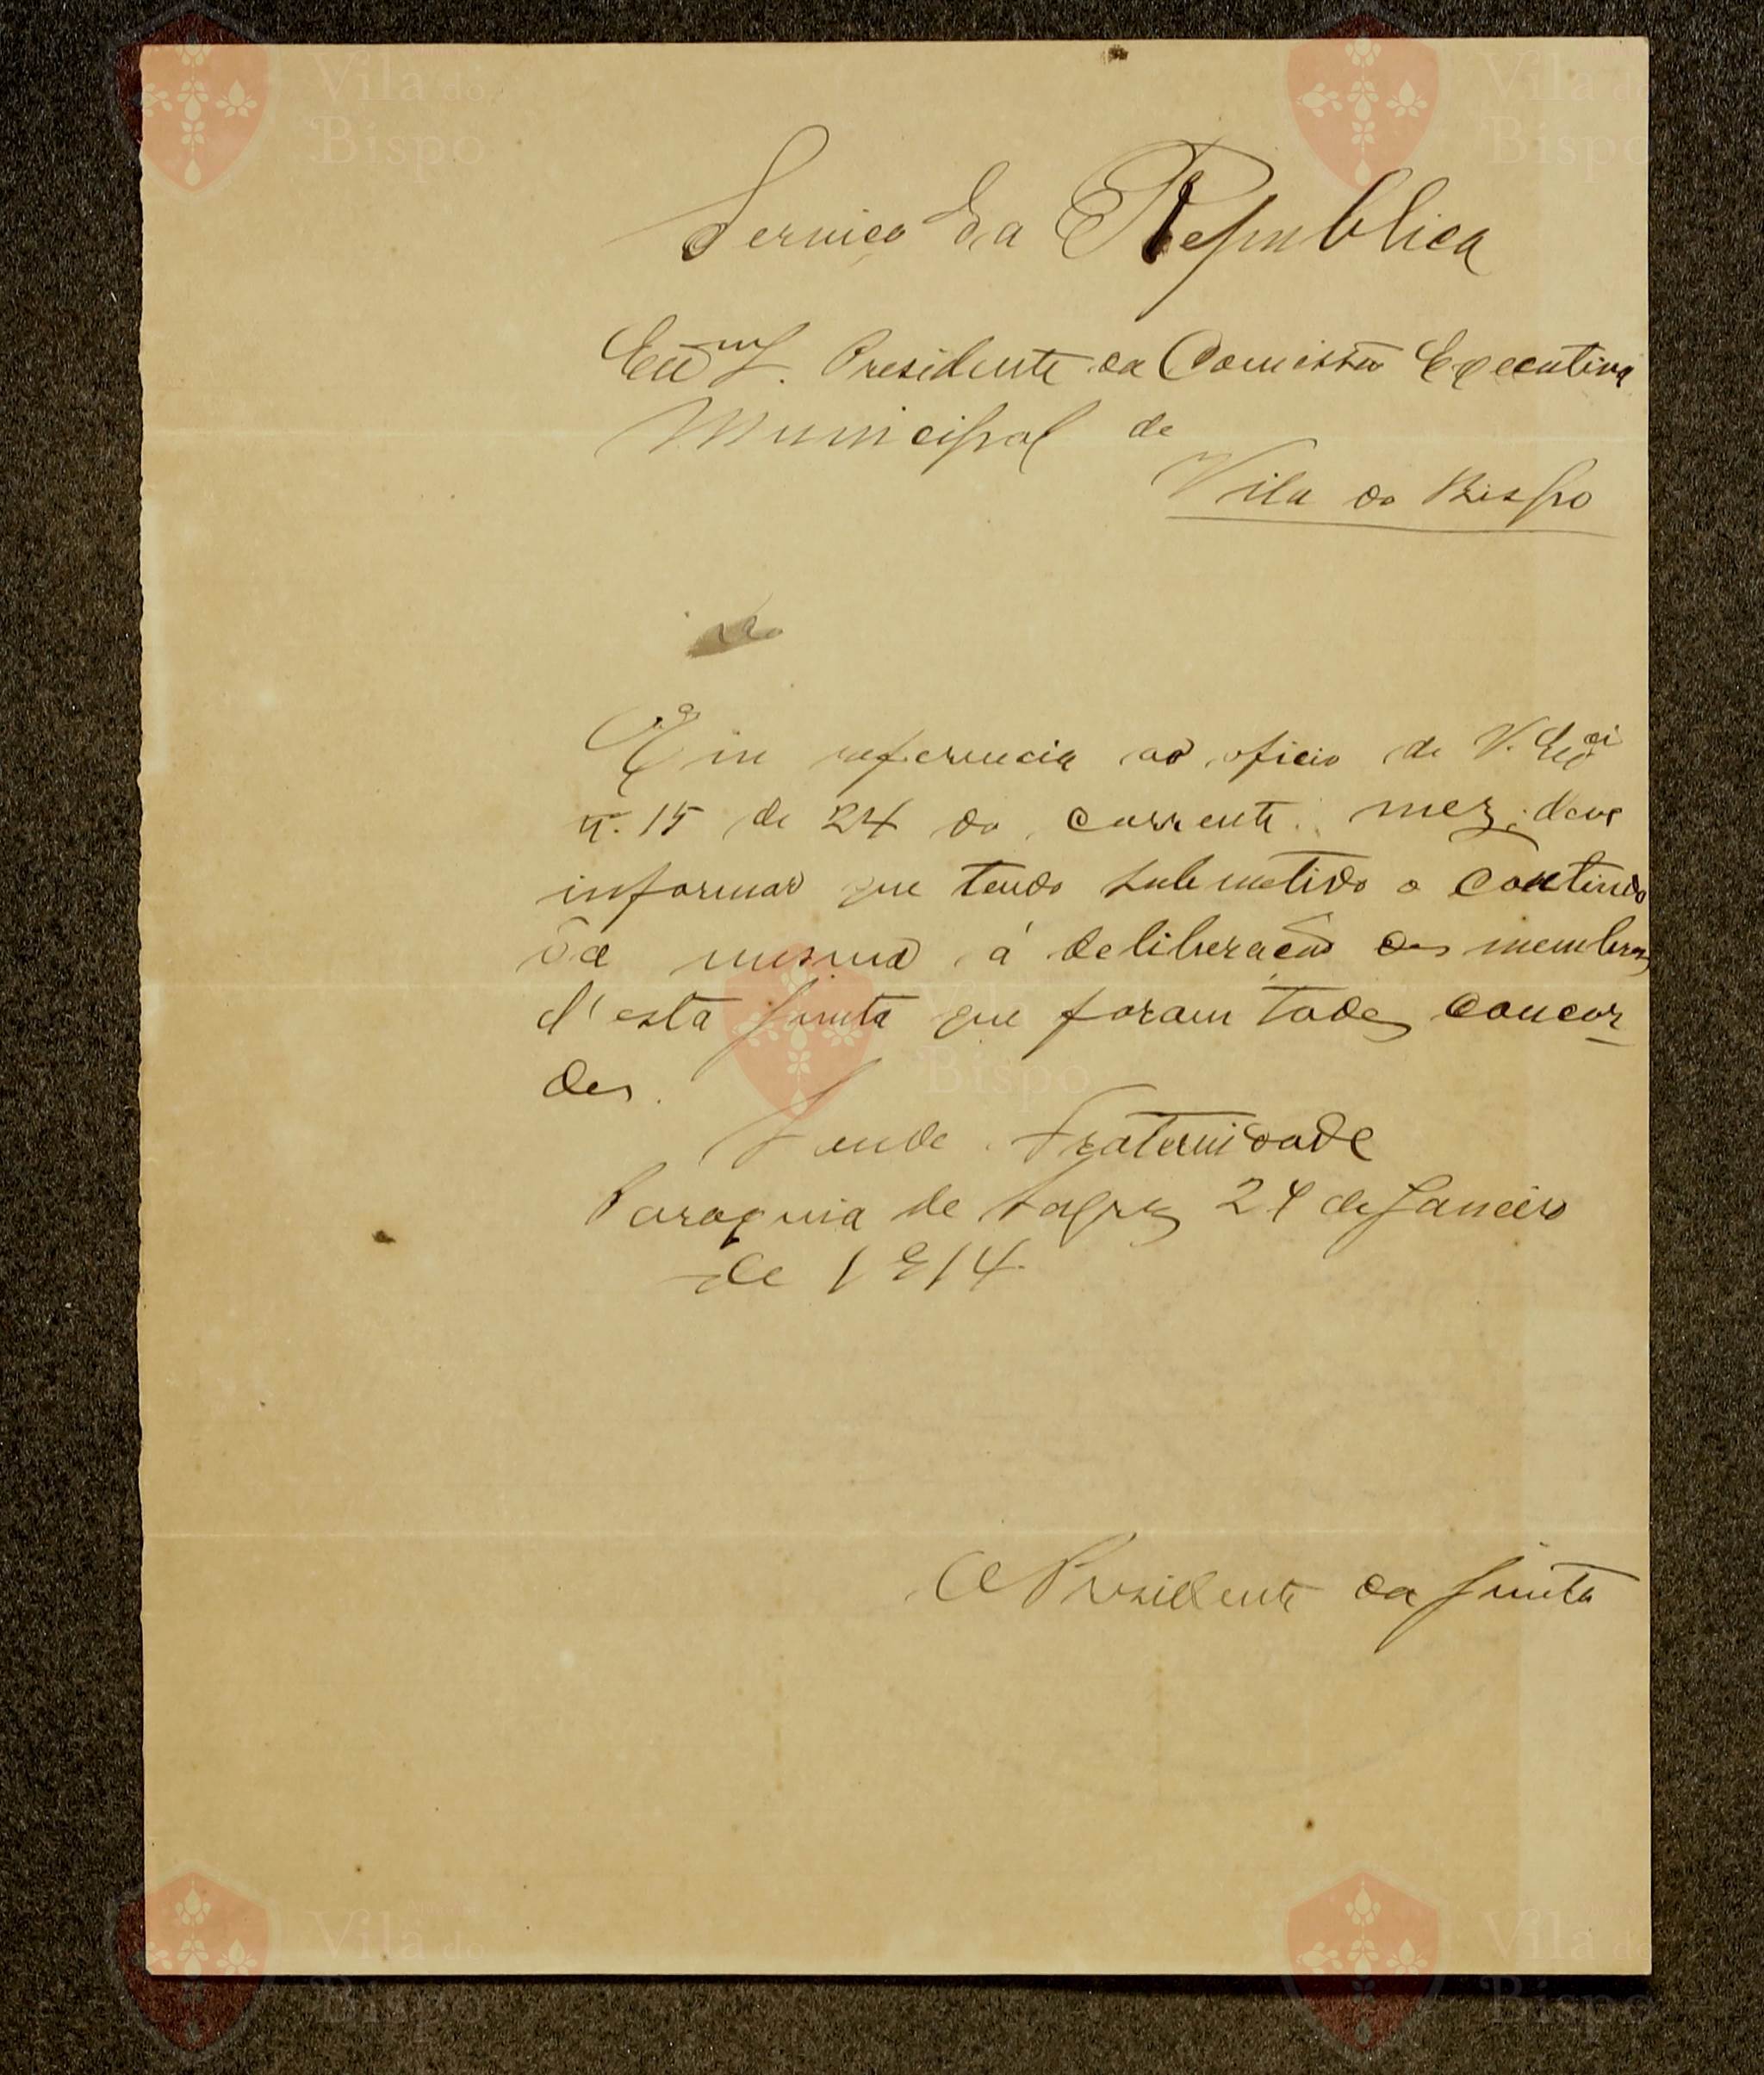 Serviço da Republica
Exmo Sr. Presidente da Comissão Executiva
Municipal de
Vila do Bispo
Em referencia ao oficio de V. Excia
n.º 15 de 24 do corrente mez, deve
informar que tendo submetido o contindo
do mesmo á deliberação dos membros
d'esta Junta que foram todos concor
des.
Saude Fraternidade
Paroquia de Sagres 24 de Janeiro
de 1914.
O Presidente da Junta
Vila do
Bispo
Vila do
Bispo
Vila do
Bispo
Vila do
Bispo
Vila do
Bispo